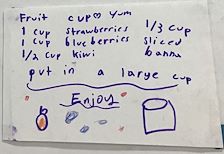 Fruit cup♡ Yum
1 cup strawberries 1/3 cup
1 cup blueberries sliced
1/2 cup kiwi banna
put in a large cup
Enjoy